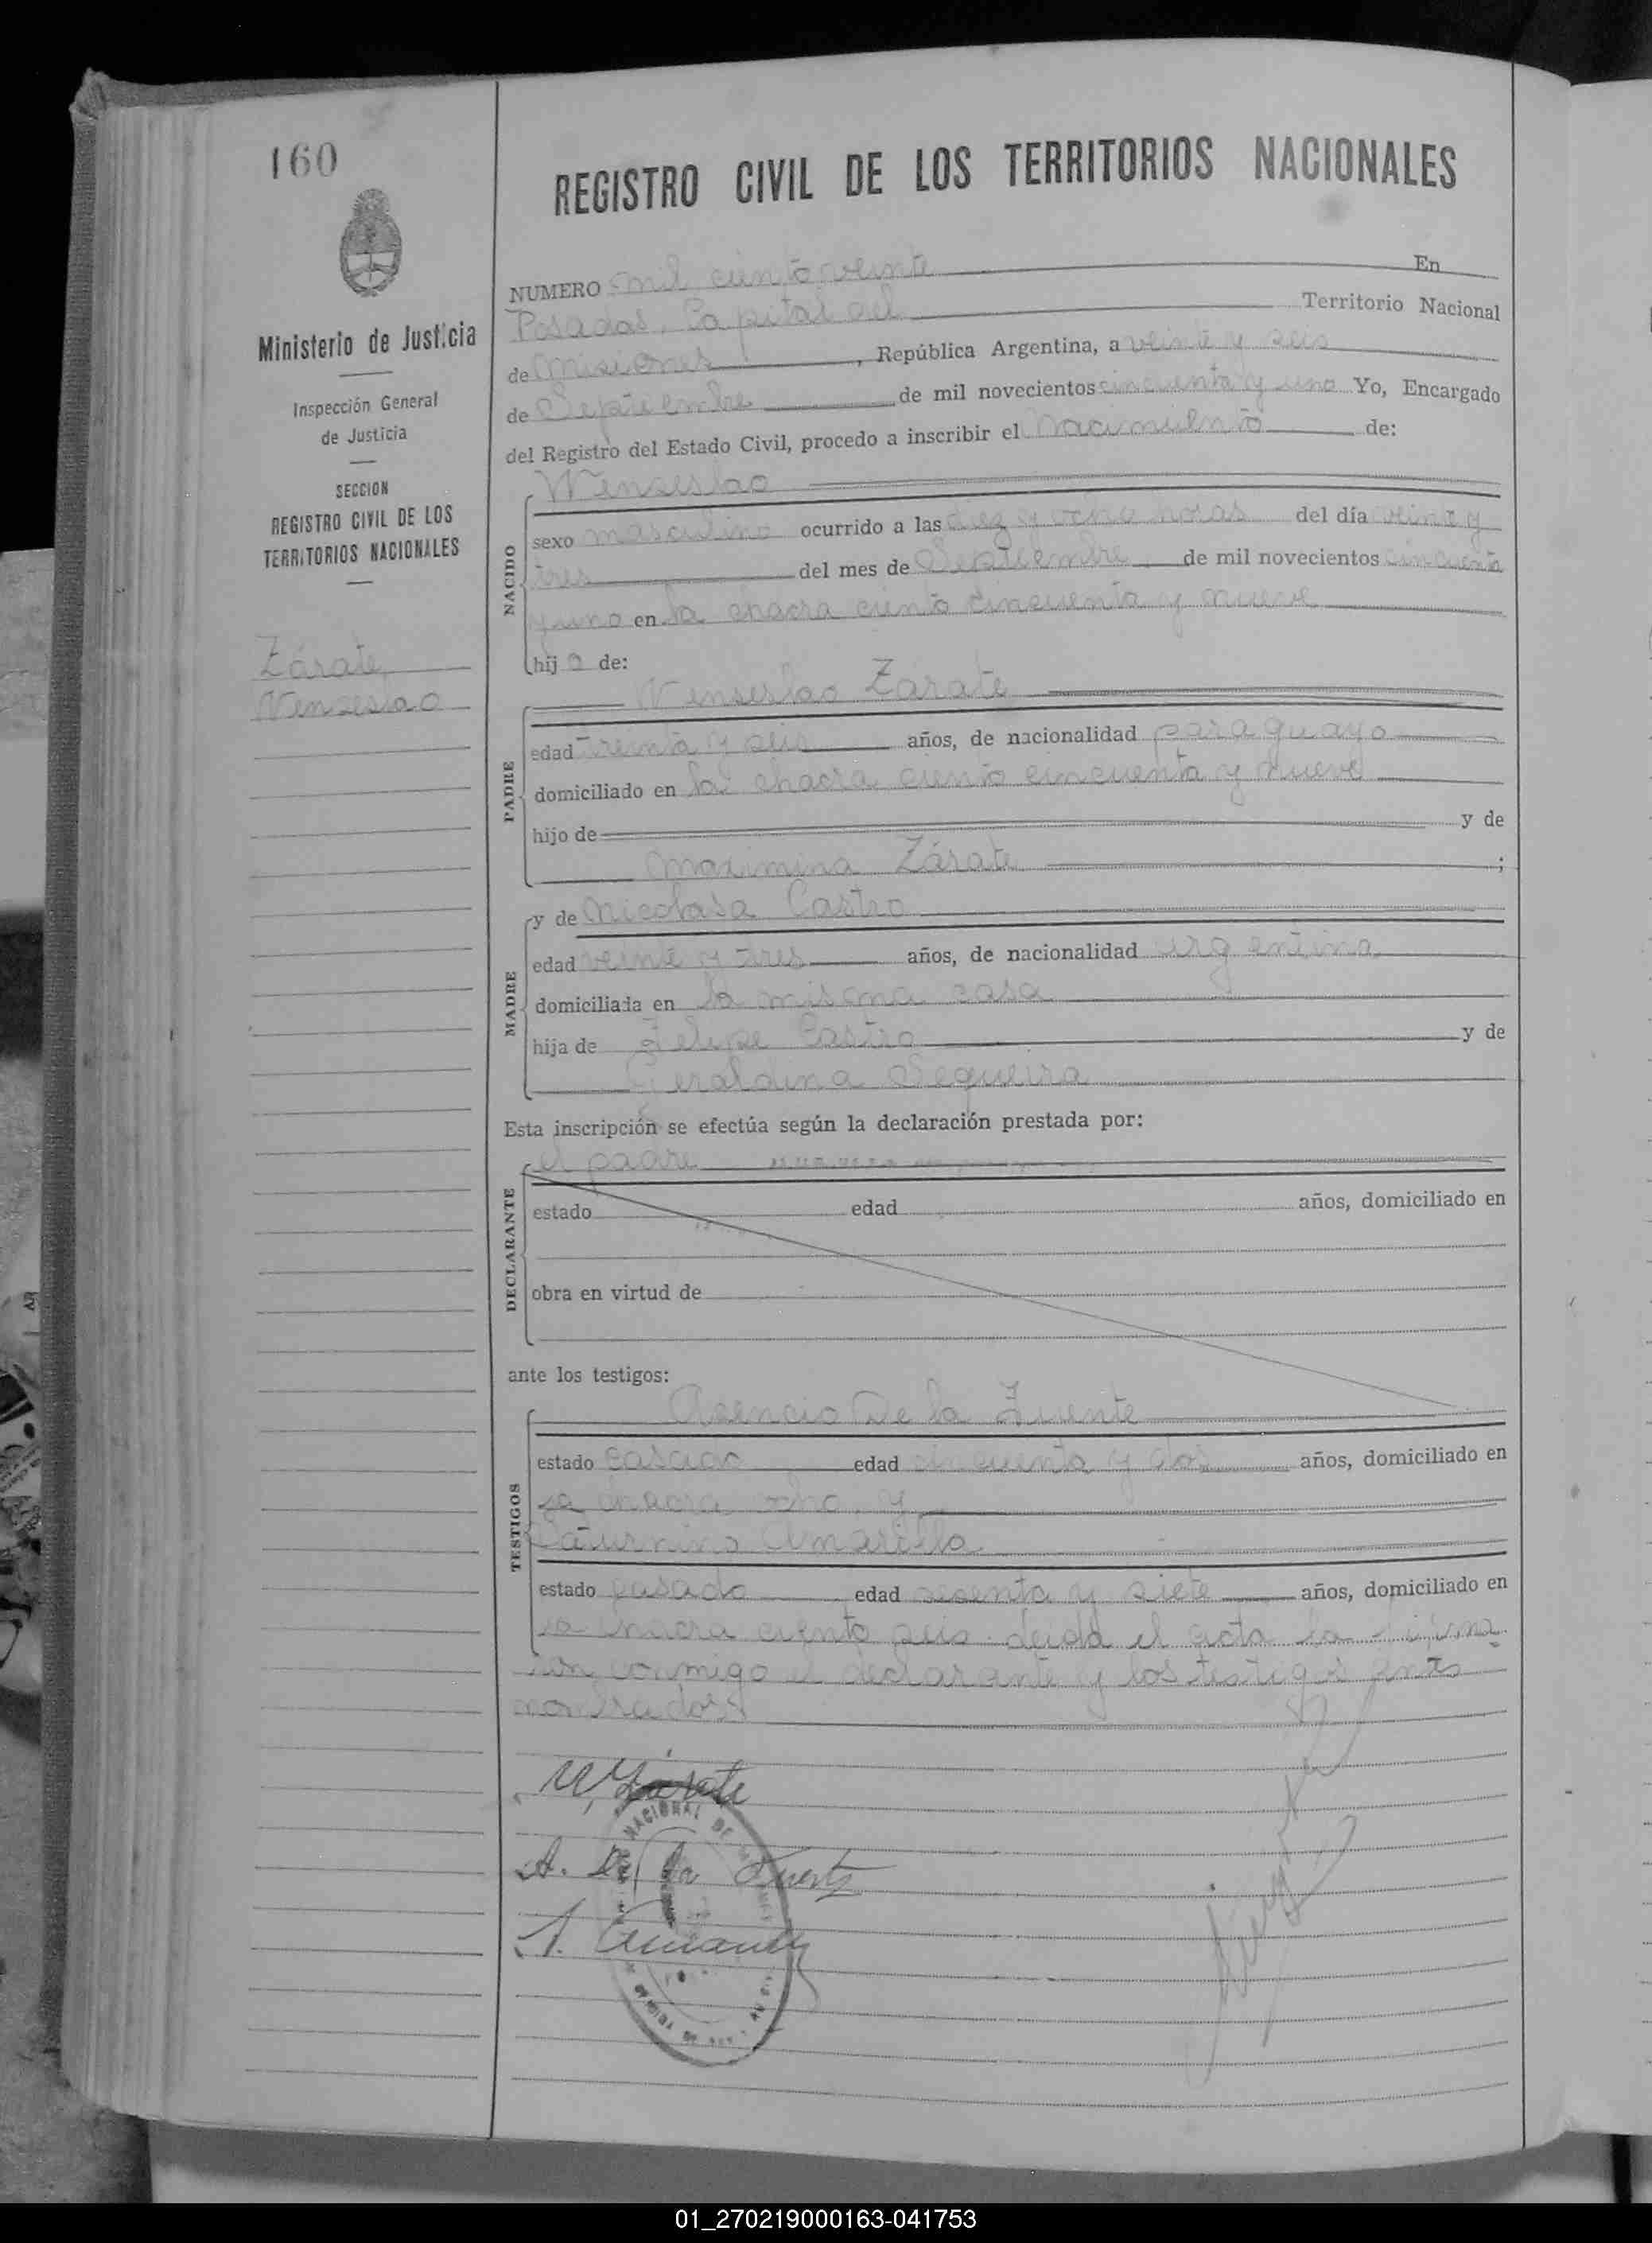 160
Ministerio de Justicia
Inspección General
de Justicia
SECCION
REGISTRO CIVIL DE LOS
TERRITORIOS NACIONALES
Zárate,
Wenseslao
REGISTRO CIVIL DE LOS TERRITORIOS NACIONALES
NUMERO mil ciento veinte En
Posadas, Capital del Territorio Nacional
de Misiones, República Argentina, a veinte y seis
de Septiembre de mil novecientos cincuenta y uno Yo, Encargado
del Registro del Estado Civil, procedo a inscribir el Nacimiento de:
NACIDO
Wenseslao
sexo masculino ocurrido a las diez y ocho horas del día veinte y
tres del mes de Septiembre de mil novecientos cincuenta
y uno en la chacra ciento cincuenta y nueve
hij o de:
PADRE
Wenseslao Zárate
edad treinta y seis años, de nacionalidad paraguayo
domiciliado en la chacra ciento cincuenta y nueve
hijo de y de
Maximina Zárate ;
MADRE
y de Nicolasa Castro
edad veinte y tres años, de nacionalidad argentina
domiciliada en la misma casa
hija de Felipe Castro y de
Geraldina Sequeira
Esta inscripción se efectúa según la declaración prestada por:
DECLARANTE
el padre
estado edad años, domiciliado en
obra en virtud de
ante los testigos:
TESTIGOS
Asencio De la Fuente
estado casado edad cincuenta y dos años, domiciliado en
la chacra ocho, y
Saturnino Amarilla
estado casado edad sesenta y siete años, domiciliado en
la chacra ciento seis. Leida el acta la firma-
ron conmigo el declarante y los testigos antes
nombrados
W. Zárate
A. De la Fuente
S. Amarilla
NACIONAL DE
01_270219000163-041753